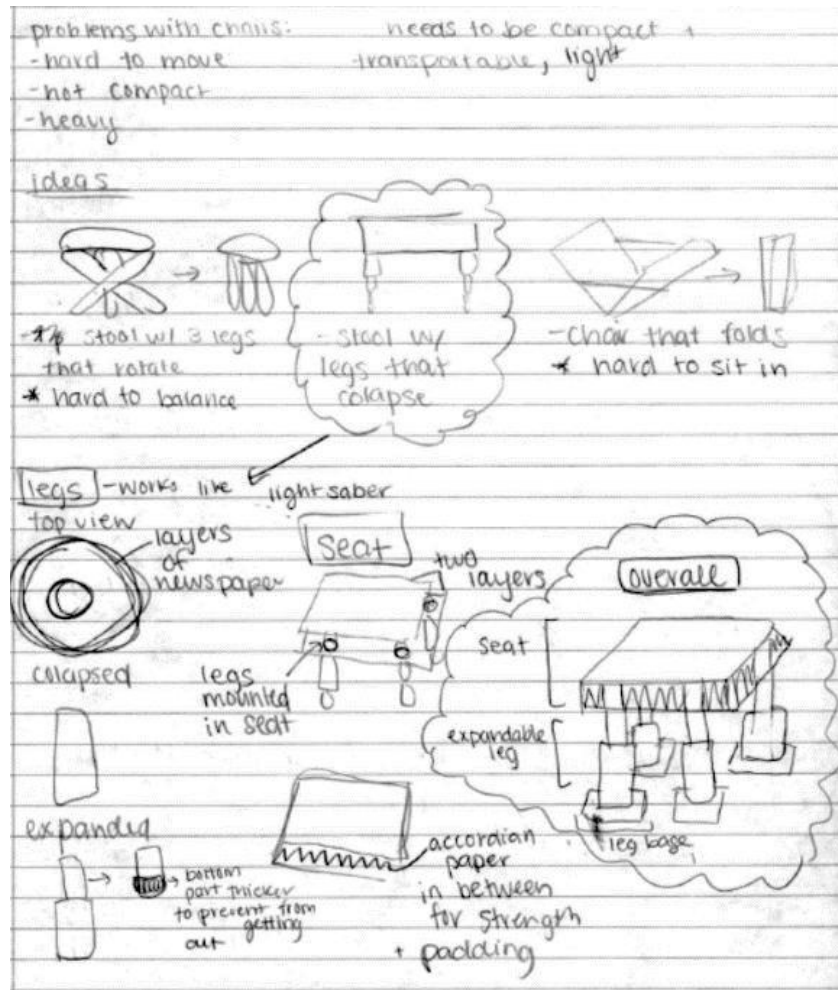 problems with chairs:
-hard to move
-not compact
-heavy
needs to be compact +
transportable, light
ideas
- stool w/ 3 legs
that rotate
* hard to balance
- stool w/
legs that
colapse
- chair that folds
* hard to sit in
legs - works like lightsaber
top view
layers
of
newspaper
colapsed
expanded
bottom
part thicker
to prevent from
getting
out
Seat
two
layers
legs
mounted
in seat
accordian
paper
in between
for strength
+ padding
overall
seat
expandable
leg
leg base